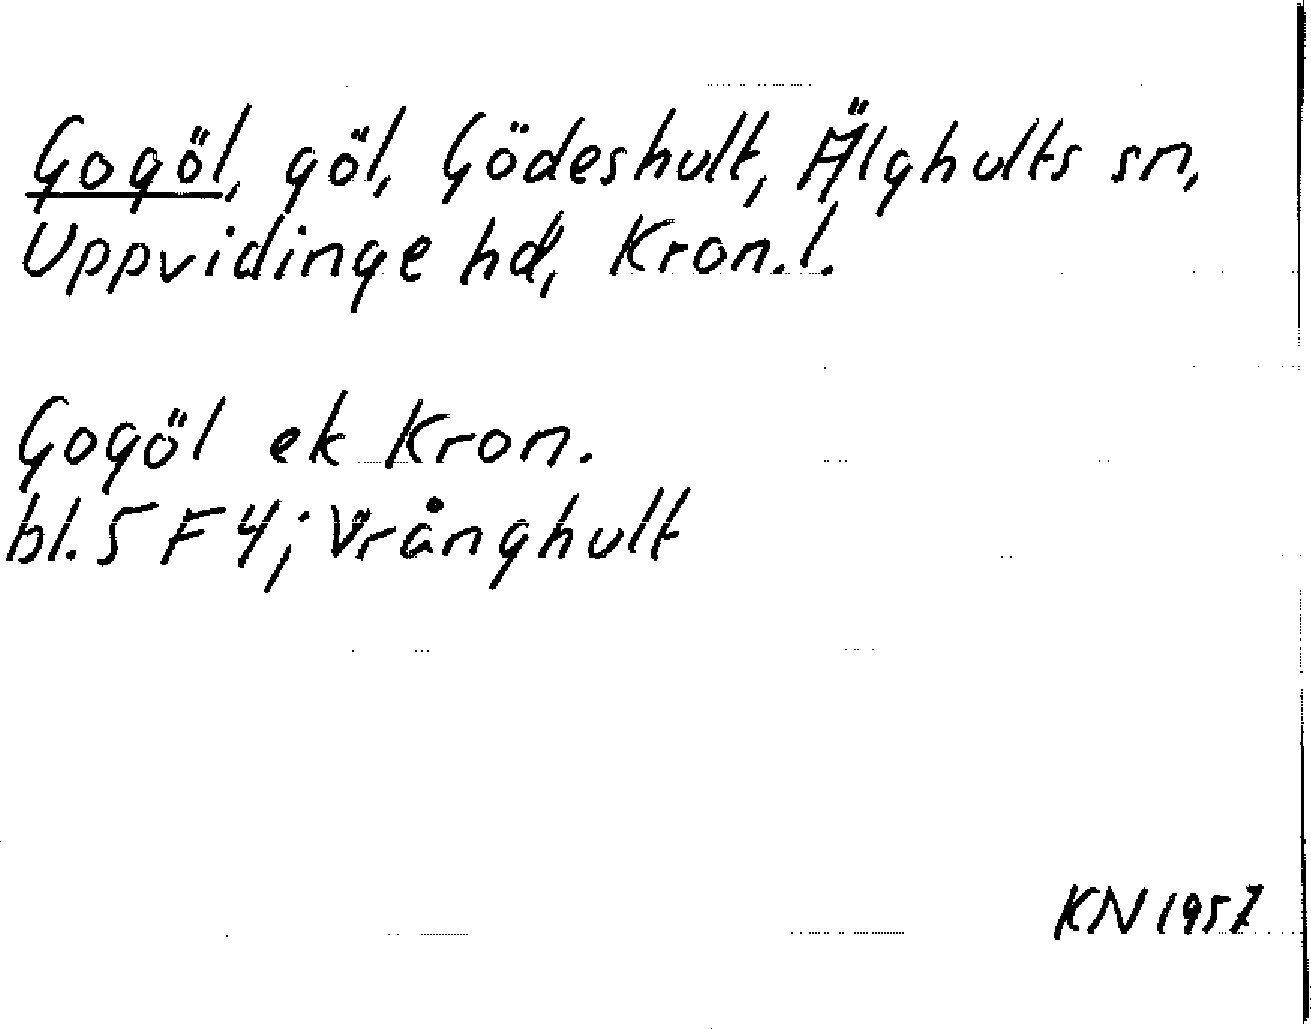 Gogöl, göl, Gödeshult, Älghults sn,
Uppvidinge hd, Kron.l.
Gogöl ek Kron.
bl. 5 F 4; Vrånghult
KN 1957